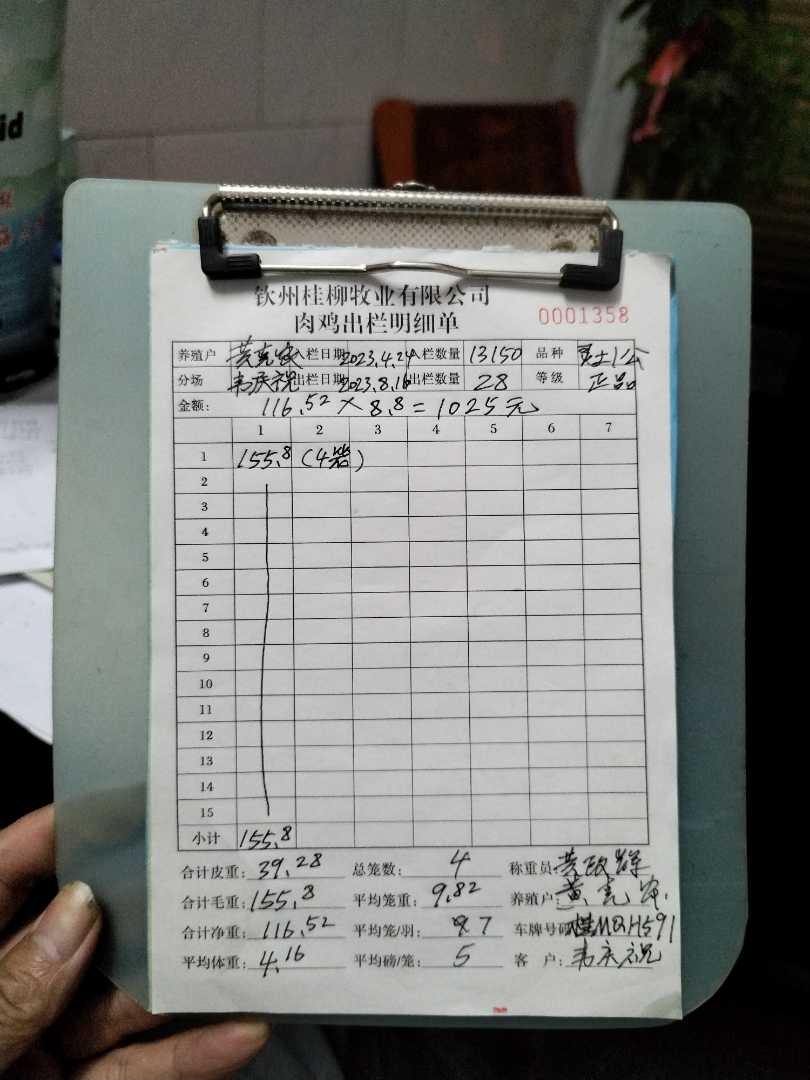 id
钦州桂柳牧业有限公司
肉鸡出栏明细单
0001358
养殖户 入栏日期 2023.4.24 入栏数量 13150 品种
分场 韦庆祝 出栏日期 2023.8.16 出栏数量 28 等级 正品
金额: 116.52 × 8.8 = 1025元
1 2 3 4 5 6 7
1 155.8 (4笼)
2
3
4
5
6
7
8
9
10
11
12
13
14
15
小计 155.8
合计皮重: 39.28 总笼数: 4 称重员:
合计毛重: 155.8 平均笼重: 9.82 养殖户: 黄
合计净重: 116.52 平均笼/羽: 7 车牌号码: 桂MQH591
平均体重: 4.16 平均磅/笼: 5 客 户: 韦庆祝